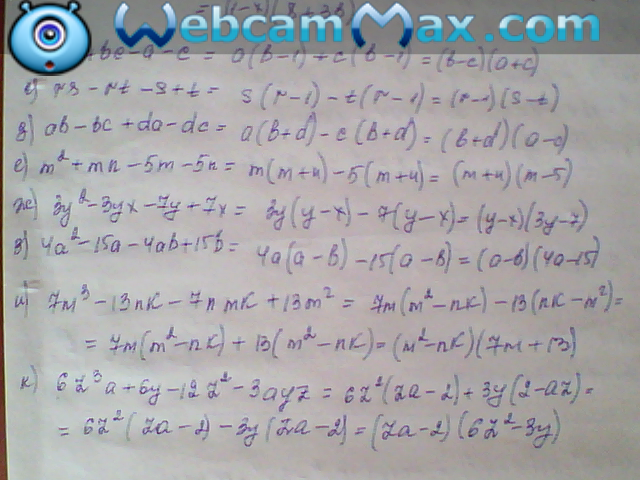 = (1-x)(8+3b)
WebcamMax.com
+bc-a-c = a(b-1)+c(b-1)=(b-c)(a+c)
rs-rt-s+t = s(r-1)-t(r-1)=(r-1)(s-t)
g) ab-bc+da-dc= a(b+d)-c(b+d)=(b+d)(a-c)
e) m²+mn-5m-5n= m(m+n)-5(m+n)= (m+n)(m-5)
ж) 3y²-3yx-7y+7x= 3y(y-x)-7(y-x)=(y-x)(3y-7)
з) 4a²-15a-4ab+15b= 4a(a-b)-15(a-b)=(a-b)(4a-15)
и) 7m³-13nk-7nmk+13m² = 7m(m²-nk)-13(nk-m²)=
= 7m(m²-nk)+13(m²-nk)=(m²-nk)(7m+13)
к) 6z³a+6y-12z²-3ayz = 6z²(za-2)+3y(2-az)=
= 6z²(za-2)-3y(za-2)=(za-2)(6z²-3y)